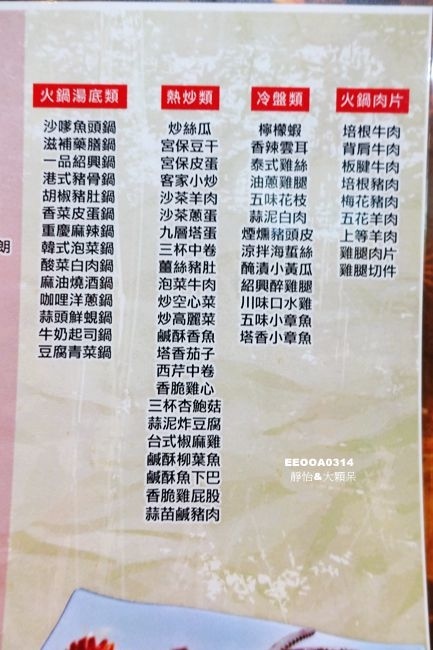 火鍋湯底類
沙嗲魚頭鍋
滋補藥膳鍋
一品紹興鍋
港式豬骨鍋
胡椒豬肚鍋
香菜皮蛋鍋
重慶麻辣鍋
韓式泡菜鍋
酸菜白肉鍋
麻油燒酒鍋
咖哩洋蔥鍋
蒜頭鮮蜆鍋
牛奶起司鍋
豆腐青菜鍋
熱炒類
炒絲瓜
宮保豆干
宮保皮蛋
客家小炒
沙茶羊肉
沙茶蔥蛋
九層塔蛋
三杯中卷
薑絲豬肚
泡菜牛肉
炒空心菜
炒高麗菜
鹹酥香魚
塔香茄子
西芹中卷
香脆雞心
三杯杏鮑菇
蒜泥炸豆腐
台式椒麻雞
鹹酥柳葉魚
鹹酥魚下巴
香脆雞屁股
蒜苗鹹豬肉
冷盤類
檸檬蝦
香辣雲耳
泰式雞絲
油蔥雞腿
五味花枝
蒜泥白肉
煙燻豬頭皮
涼拌海蜇絲
醃漬小黃瓜
紹興醉雞腿
川味口水雞
五味小章魚
塔香小章魚
火鍋肉片
培根牛肉
背肩牛肉
板腱牛肉
培根豬肉
梅花豬肉
五花羊肉
上等羊肉
雞腿肉片
雞腿切件
朗
EEOOA0314
靜怡&大顆呆